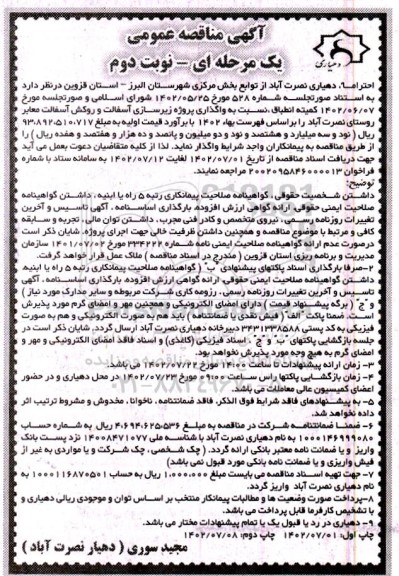 آگهی مناقصه عمومی
یک مرحله ای – نوبت دوم
دهیاری
احتراماً، دهیاری نصرت آباد از توابع بخش مرکزی شهرستان البرز – استان قزوین درنظر دارد
به استناد صورتجلسه شماره ۵۲۸ مورخ ۱۴۰۲/۰۵/۲۵ شورای اسلامی و صورتجلسه مورخ
۱۴۰۲/۰۶/۰۷ کمیته انطباق ،نسبت به واگذاری پروژه زیرسازی آسفالت و روکش آسفالت معابر
روستای نصرت آباد را براساس فهرست بهاء ۱۴۰۲ با برآورد قیمت اولیه به مبلغ ۹۳،۸۹۲،۵۱۰،۷۱۷
ریال ( نود و سه میلیارد و هشتصد و نود و دو میلیون و پانصد و ده هزار و هفتصد و هفده ریال ) را
از طریق مناقصه به پیمانکاران واجد شرایط واگذار نماید. لذا از کلیه متقاضیان دعوت بعمل می آید
جهت دریافت اسناد مناقصه از تاریخ ۱۴۰۲/۰۷/۰۱ لغایت ۱۴۰۲/۰۷/۱۲ به سامانه ستاد با شماره
فراخوان ۲۰۰۲۰۹۵۸۴۶۰۰۰۰۱۳ مراجعه نمایند.
توضیح:
داشتن شخصیت حقوقی ، گواهینامه صلاحیت پیمانکاری رتبه ۵ راه یا ابنیه، داشتن گواهینامه
صلاحیت ایمنی حقوقی، ارائه گواهی ارزش افزوده، بارگذاری اساسنامه ، آگهی تاسیس و آخرین
تغییرات روزنامه رسمی، نیروی متخصص و کادر فنی مجرب، داشتن توان مالی ، تجربه و سابقه
کافی و مرتبط با موضوع مناقصه و همچنین داشتن ظرفیت خالی جهت اجرای پروژه. شایان ذکر است
درصورت عدم ارائه گواهینامه صلاحیت ایمنی نامه شماره ۳۳۴۲۲۲ مورخ ۱۴۰۱/۰۷/۰۲ سازمان
مدیریت و برنامه ریزی استان قزوین ( مندرج در اسناد مناقصه ) ملاک عمل قرار خواهد گرفت.
۲-صرفا بارگذاری اسناد پاکتهای پیشنهادی "ب" ( گواهینامه صلاحیت پیمانکاری رتبه ۵ راه یا ابنیه،
داشتن گواهینامه صلاحیت ایمنی حقوقی، ارائه گواهی ارزش افزوده، بارگذاری اساسنامه ، آگهی
تاسیس و آخرین تغییرات روزنامه رسمی ، رزومه کاری شرکت مربوطه و سایر مدارک مورد نیاز )
و "ج" ( برگه پیشنهاد قیمت ) دارای امضای الکترونیکی و همچنین مهر و امضای گرم مورد پذیرش
است. ضمنا پاکت "الف" ( فیش نقدی یا ضمانتنامه ) باید هم به صورت الکترونیکی و هم به صورت
فیزیکی به کد پستی ۳۴۳۱۳۳۸۵۸۸ دبیرخانه دهیاری نصرت آباد ارسال گردد. شایان ذکر است در
جلسه بازگشایی پاکتهای "ب" و "ج" ، اسناد فیزیکی (کاغذی) و اسناد فاقد امضای الکترونیکی و مهر و
امضای گرم به هیچ وجه مورد پذیرش نخواهد بود.
۳- زمان ارائه پیشنهادات تا ساعت ۱۴:۰۰ مورخ ۱۴۰۲/۰۷/۲۲ می باشد.
۴- زمان بازگشایی پاکتها راس ساعت ۰۹:۰۰ مورخ ۱۴۰۲/۰۷/۲۳ در محل دهیاری و در حضور
اعضای کمیسیون عالی معاملات می باشد.
۵- به پیشنهادهای فاقد شرایط فوق الذکر، فاقد ضمانتنامه، ناخوانا، مخدوش و مشروط ترتیب اثر
داده نخواهد شد.
۶- ضمنا ضمانتنامه شرکت در مناقصه به مبلغ ۴،۶۹۴،۶۲۵،۵۳۶ ریال به شماره حساب
۱۰۰۰۱۴۶۹۹۹۰۸۰ به نام دهیاری نصرت آباد با شناسه ملی ۱۴۰۰۸۴۷۱۰۷۷ نزد پست بانک
واریز و یا ضمانت نامه معتبر بانکی ارائه گردد. ( چک شخصی ، چک شرکت و یا مواردی به غیر از
فیش واریزی و یا ضمانت نامه بانکی مورد قبول نمی باشد)
۷- جهت تهیه اسناد مناقصه می بایست مبلغ ۱،۰۰۰،۰۰۰ ریال به حساب ۱۰۰۰۱۱۶۸۷۰۵۰۱ به
نام دهیاری نصرت آباد واریز گردد.
۸-پرداخت صورت وضعیت ها و مطالبات پیمانکار منتخب بر اساس توان و موجودی ریالی دهیاری و
با تشخیص کارفرما قابل پرداخت می باشد.
۹- دهیاری در رد یا قبول یک یا تمام پیشنهادات مختار می باشد.
چاپ اول: ۱۴۰۲/۰۷/۰۱ چاپ دوم: ۱۴۰۲/۰۷/۰۸
مجید سوری ( دهیار نصرت آباد )